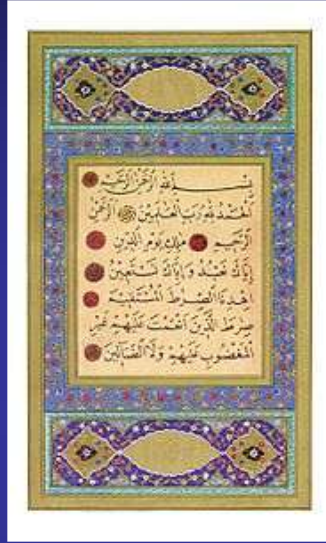 بِسْمِ اللَّهِ الرَّحْمَٰنِ الرَّحِيمِ
الْحَمْدُ لِلَّهِ رَبِّ الْعَالَمِينَ الرَّحْمَٰنِ
الرَّحِيمِ مَلِكِ يَوْمِ الدِّينِ
إِيَّاكَ نَعْبُدُ وَإِيَّاكَ نَسْتَعِينُ
اهْدِنَا الصِّرَاطَ الْمُسْتَقِيمَ
صِرَاطَ الَّذِينَ أَنْعَمْتَ عَلَيْهِمْ غَيْرِ
الْمَغْضُوبِ عَلَيْهِمْ وَلَا الضَّالِّينَ